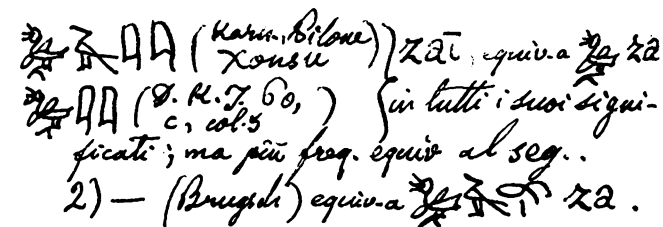 (Karn., Pilone Xonsu) zaī, equiv-a za
(D. H. J. 60, c, col. 5) in tutti i suoi signi-
ficati; ma più freq. equiv al seg..
2) — (Brugsch) equiv-a za.